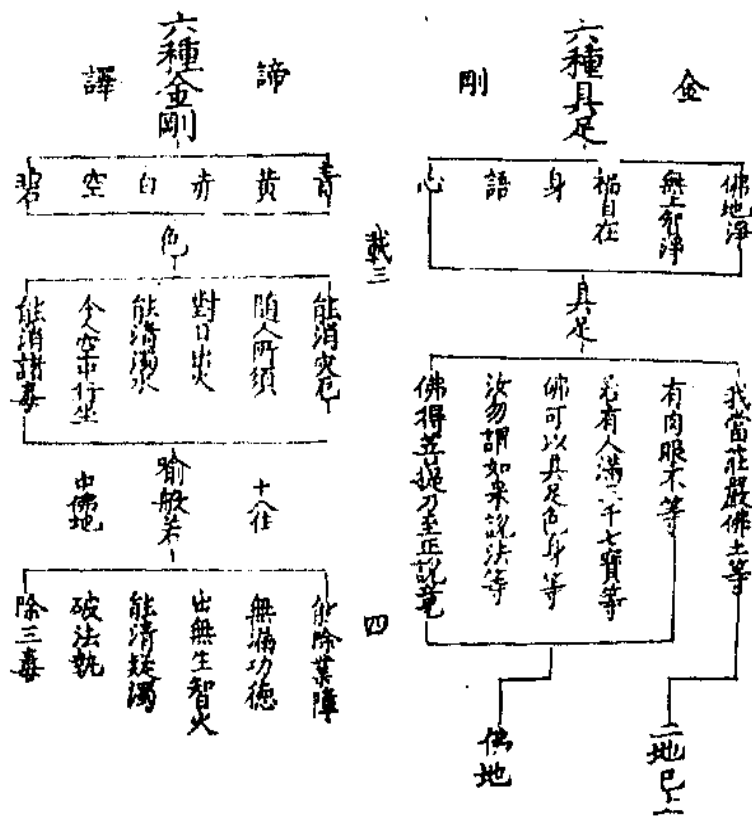 金
剛
六種具足
佛地淨
無上智淨
福自在
身
語
心
具足
我當莊嚴佛土等
有肉眼不等
若有人滿三千七寶等
佛可以具足色身等
汝勿謂如來說法等
佛得菩提乃至正說竟
二地已上
佛地
載三
四
諦
譯
六種金剛
青
黃
赤
白
空
碧
色
能消災厄
随人所須
對日出火
能清濁水
令人空中行坐
能消諸毒
十八住
喻般若
中佛地
能除業障
無漏功德
出無生智火
能清疑濁
破法執
除三毒